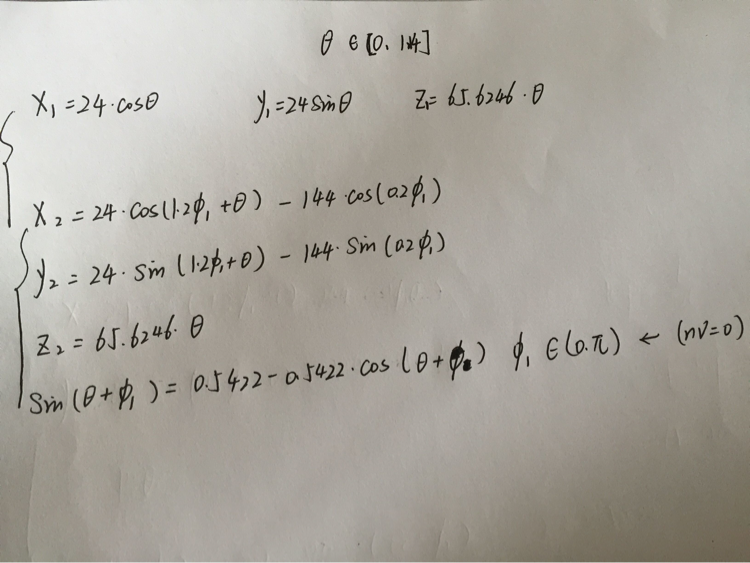 θ ∈ [0, 14]
X₁ = 24·cosθ y₁ = 24 sinθ Z₁ = 65.6246·θ
X₂ = 24·cos(1.2ϕ₁ + θ) - 144·cos(0.2ϕ₁)
y₂ = 24·sin(1.2ϕ₁+θ) - 144·sin(0.2ϕ₁)
Z₂ = 65.6246·θ
Sin(θ+ϕ₁) = 0.5422 - 0.5422·cos(θ+ϕ) ϕ₁ ∈ (0.π) ← (nv=0)